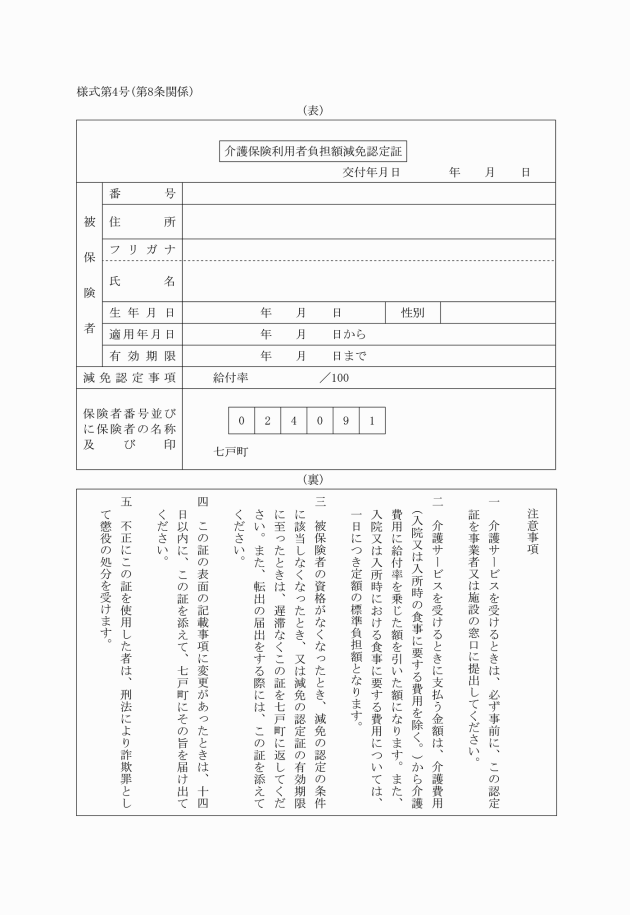 様式第4号(第8条関係)
(表)
介護保険利用者負担額減免認定証
交付年月日　年　月　日
被保険者
番号
住所
フリガナ
氏名
生年月日　年　月　日　性別
適用年月日　年　月　日から
有効期限　年　月　日まで
減免認定事項　給付率　／100
保険者番号並び
に保険者の名称
及び印
0 2 4 0 9 1
七戸町
(裏)
注意事項
一　介護サービスを受けるときは、必ず事前に、この認定
証を事業者又は施設の窓口に提出してください。
二　介護サービスを受けるときに支払う金額は、介護費用
(入院又は入所時の食事に要する費用を除く。)から介護
費用に給付率を乗じた額を引いた額になります。また、
入院又は入所時における食事に要する費用については、
一日につき定額の標準負担額となります。
三　被保険者の資格がなくなったとき、減免の認定の条件
に該当しなくなったとき、又は減免の認定証の有効期限
に至ったときは、遅滞なくこの証を七戸町に返してくだ
さい。また、転出の届出をする際には、この証を添えて
ください。
四　この証の表面の記載事項に変更があったときは、十四
日以内に、この証を添えて、七戸町にその旨を届け出て
ください。
五　不正にこの証を使用した者は、刑法により詐欺罪とし
て懲役の処分を受けます。